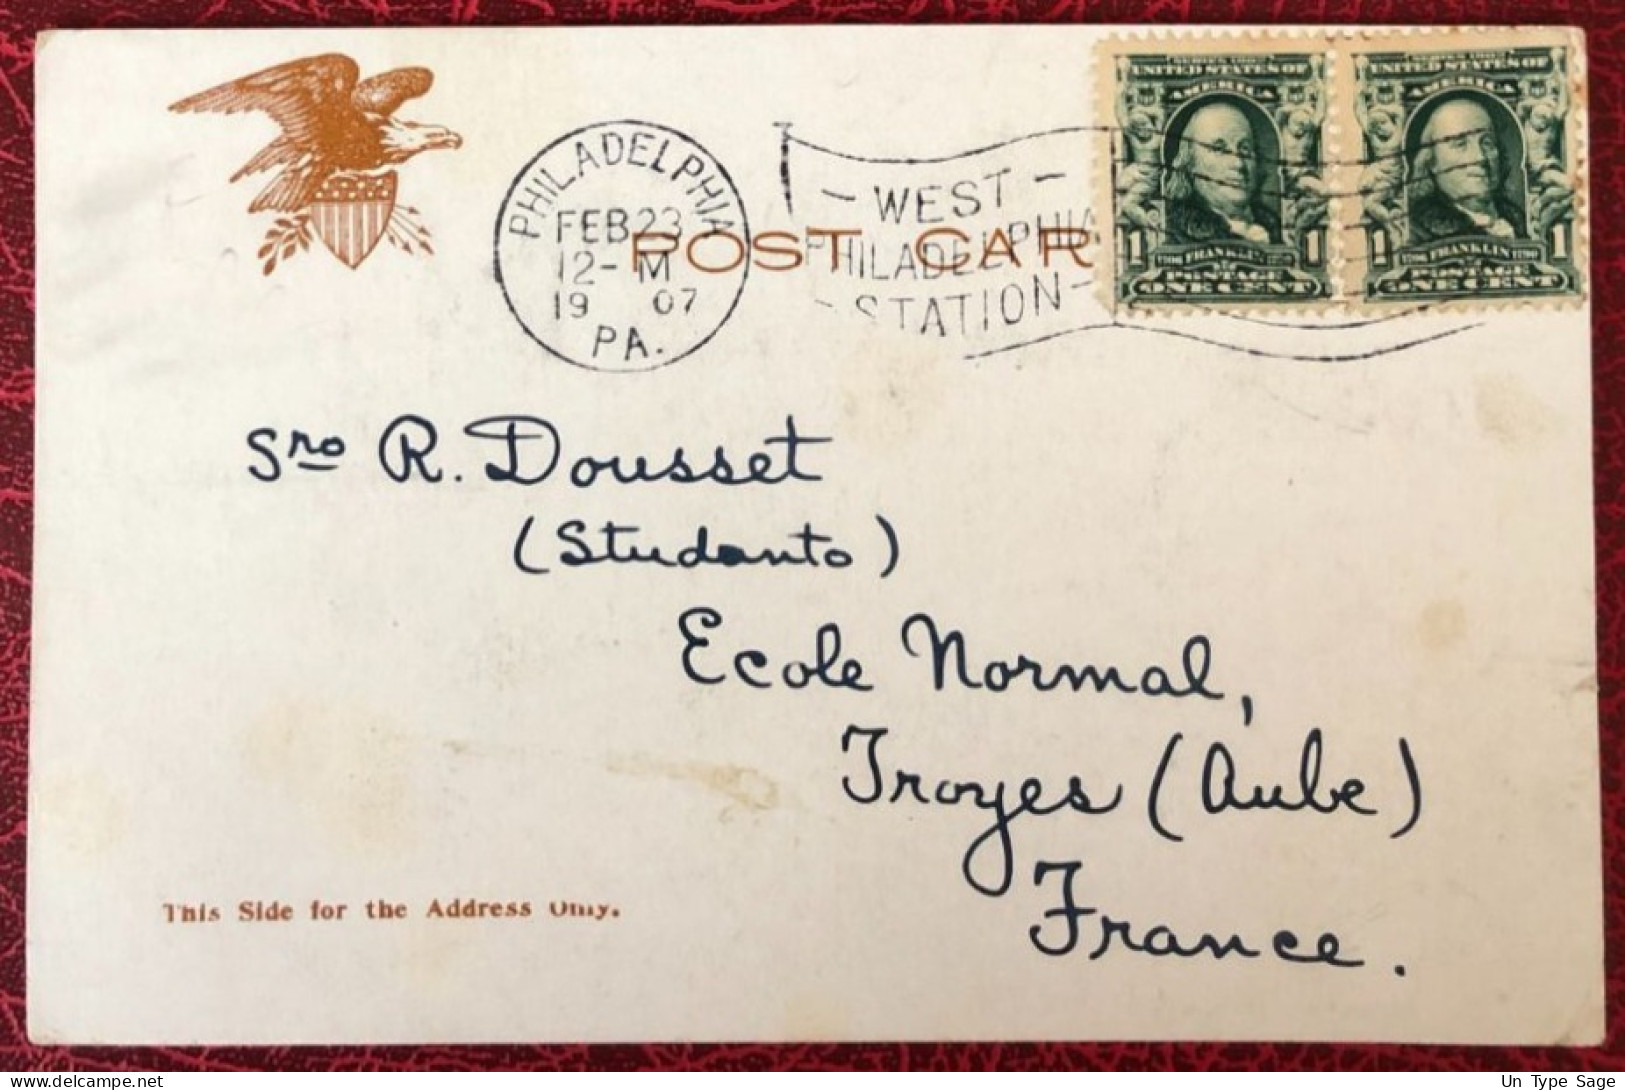 PHILADELPHIA
FEB 23
12- M
19 07
PA.
- WEST -
PHILADELPHIA
- STATION -
POST CAR
SERIES 1902
UNITED STATES OF
AMERICA
1 FRANKLIN 1
POSTAGE
ONE CENT
UNITED STATES OF
AMERICA
1 FRANKLIN 1
POSTAGE
ONE CENT
Sro R. Dousset
(Studanto)
Ecole Normal,
Troyes (Aube)
France.
This Side for the Address Only.
Un Type Sage